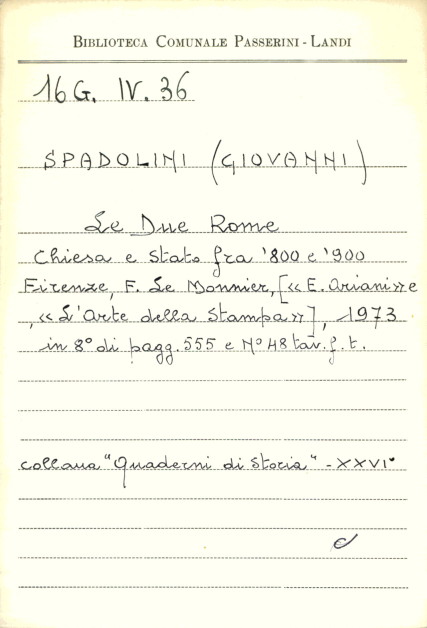 BIBLIOTECA COMUNALE PASSERINI - LANDI
16 G. IV. 36
SPADOLINI (GIOVANNI)
Le Due Rome
Chiesa e Stato fra '800 e '900
Firenze, F. Le Monnier, [«E. Ariani» e
, «L'Arte della Stampa»], 1973
in 8° di pagg. 555 e N° 48 tav. f. t.
collana "Quaderni di Storia" - XXVI°